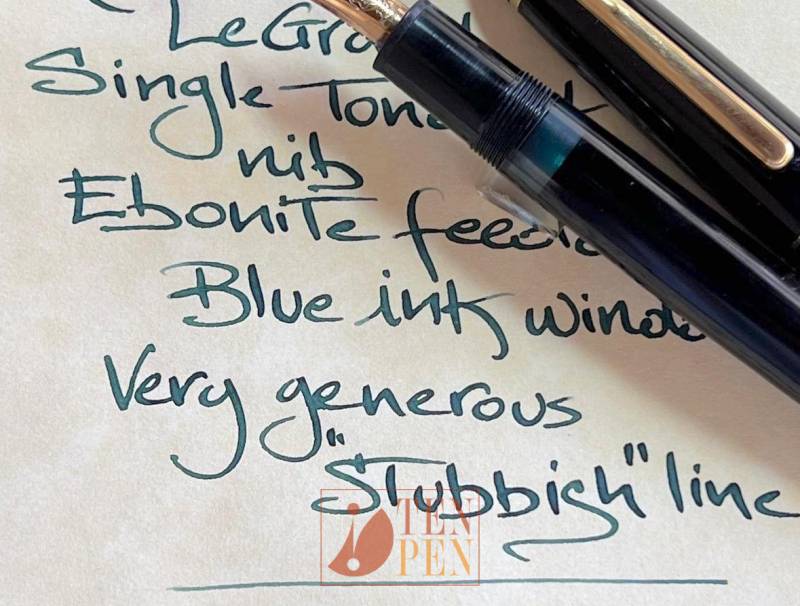 LeGra
Single Tone
nib
Ebonite feed
Blue ink windo
Very generous
"Stubbish" line
TEN
PEN